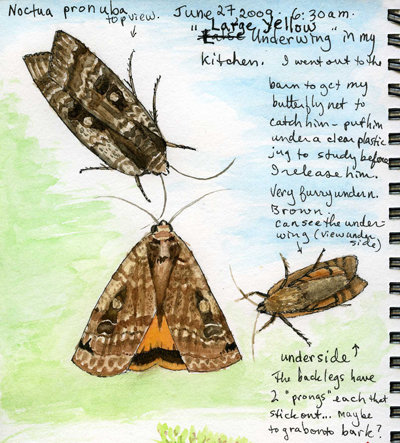 Noctua pronuba
top view.
June 27 2009. 6:30am.
"Large Yellow
Underwing" in my
kitchen. I went out to the
barn to get my
butterfly net to
catch him - put him
under a clear plastic
jug to study before
I release him.
Very furry undern.
Brown.
can see the under-
wing (view under
side)
underside
The back legs have
2 "prongs" each that
stick out... Maybe
to grab onto bark?